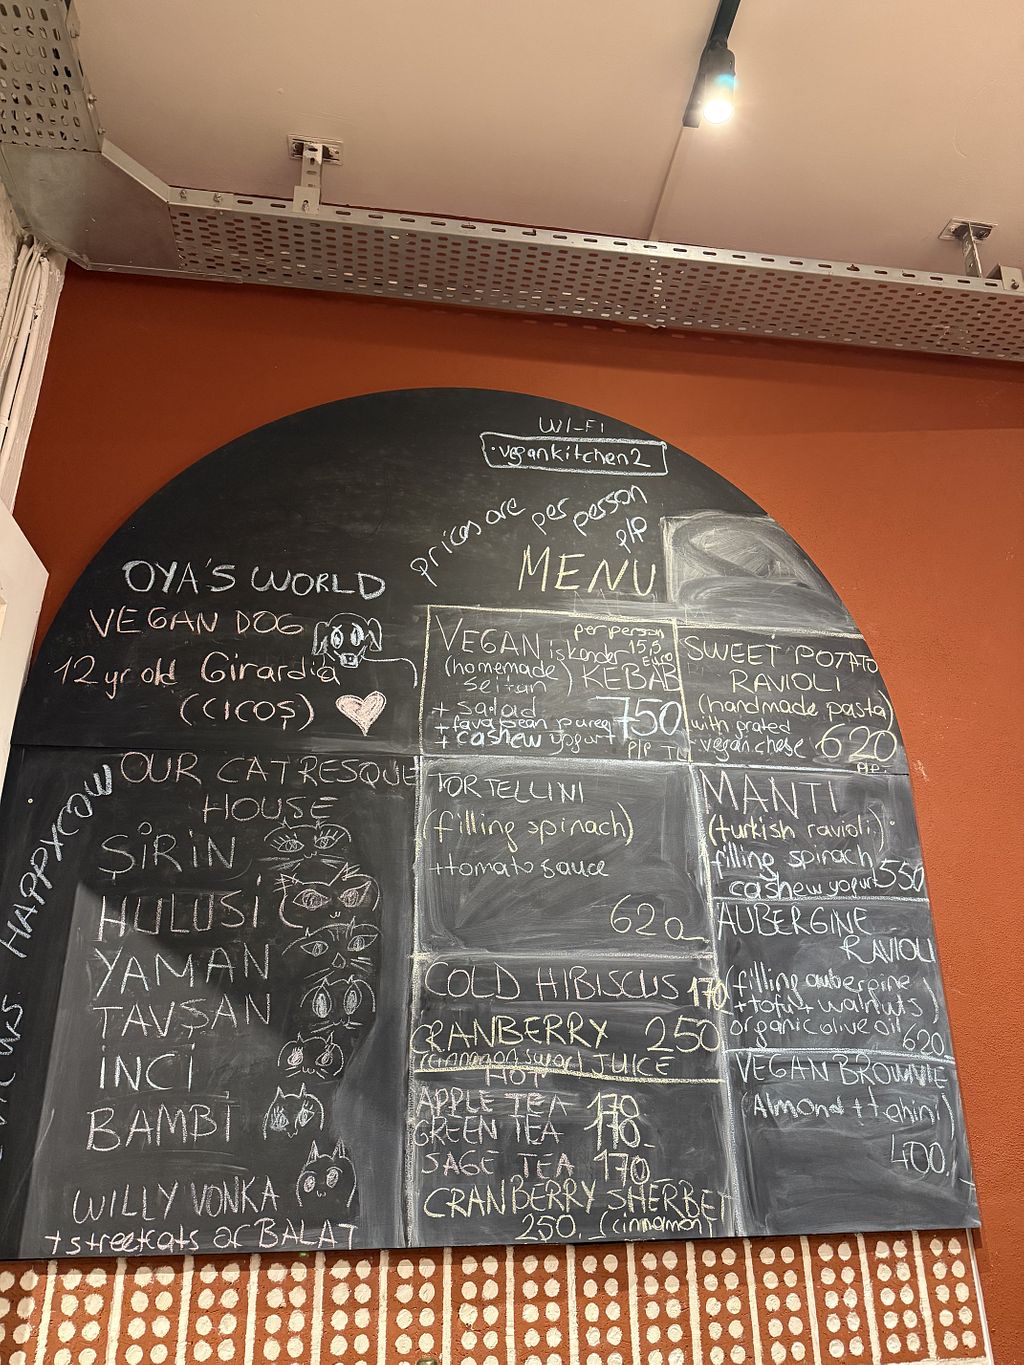 WI-FI
vegankitchen2
prices are per person
P/P
MENU
OYA'S WORLD
VEGAN DOG
12 yr old Girardia
(CICOŞ)
VEGAN iskender
per person
15,5
Euro
(homemade seitan) KEBAB
+ salad
+ fava bean puree
+ cashew yogurt
750
P/P TL
SWEET POTATO
RAVIOLI
(handmade pasta)
with grated
vegan chese 620
P.P.
HAPPYCOW
OUR CATRESQUE
HOUSE
ŞİRİN
HULUSİ
YAMAN
TAVŞAN
İNCİ
BAMBİ
WILLY VONKA
+ streetcats of BALAT
TORTELLINI
(filling spinach)
+tomato sauce
620
COLD HIBISCUS 170
CRANBERRY 250
JUICE
HOT
APPLE TEA 170
GREEN TEA 170
SAGE TEA 170
CRANBERRY SHERBET
250. (cinnamon)
MANTI
(turkish ravioli)
filling spinach
cashew yogurt 550
AUBERGINE
RAVIOLI
(filling auberpine
+tofu+ walnuts)
organic olive oil
620
VEGAN BROWNIE
(Almond + tahini)
400.